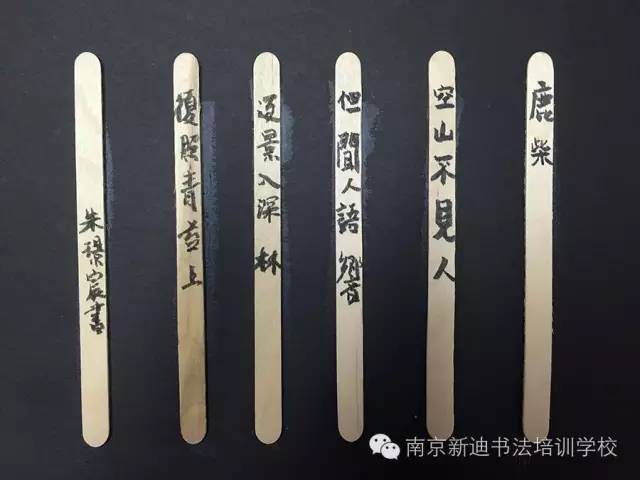 鹿柴
空山不見人
但聞人語響
返景入深林
復照青苔上
朱璟宸書
南京新迪书法培训学校